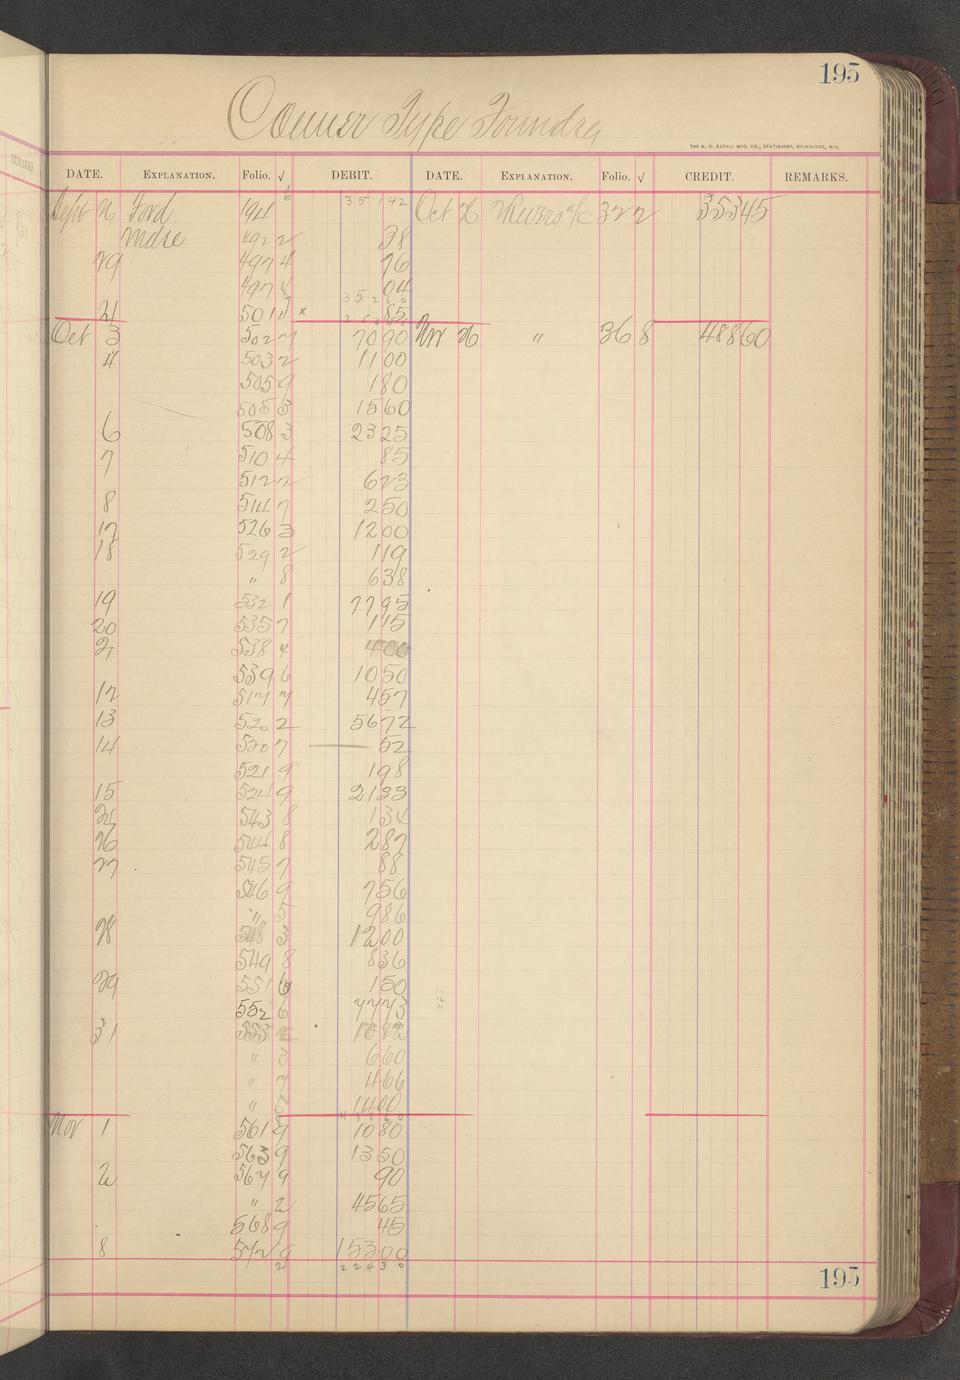 195
Conner Type Foundry
THE H. G. RAZALL MFG. CO., STATIONERS, MILWAUKEE, WIS.
DATE. EXPLANATION. Folio. √ DEBIT. DATE. EXPLANATION. Folio. √ CREDIT. REMARKS.
Sept 26 Ford 194 6 351 92 Oct 26 a/c 322 353 45
Mdse 492 2 38
29 497 4 76
497 4 04
501 4 x 85
Oct 3 502 7 70 90 Nov 26 " 36 8 488 60
4 503 2 11 00
505 9 1 80
505 3 15 60
6 508 3 23 25
7 510 4 85
512 2 6 23
8 514 7 2 50
17 526 3 12 00
18 529 2 1 19
" 8 6 38
19 532 1 77 95
20 535 7 1 15
21 538 4 4 00
539 6 10 50
12 517 7 4 57
13 520 2 56 72
14 520 7 52
521 9 1 98
15 524 9 21 33
543 8 1 34
26 544 8 2 87
27 545 7 88
546 9 7 56
" 5 9 86
28 548 3 12 00
549 8 8 36
29 551 6 1 50
552 6 77 73
31 553
" 3 6 60
" 7 4 66
" 14 00
Nov 1 561 9 10 80
563 9 13 50
2 567 9 90
" 2 45 65
568 9 45
8 572 9 153 00
2 224 30
195